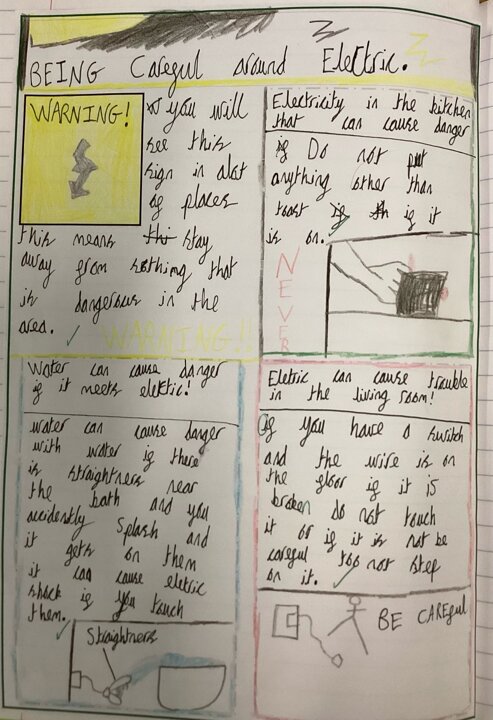 BEING Careful around Electric.
WARNING!
you will
see this
sign in alot
of places
this means stay
away from somthing that
is dangerous in the
area.
WARNING!!
Electricity in the kitchen
that can cause danger
Do not put
anything other than
toast if it
is on.
NEVER
Water can cause danger
if it meets elektic!
water can cause danger
with water if there
is straightners near
the bath and you
accidently splash and
it gets on them
it can cause eletric
shock if you touch
them.
Straightners
Eletric can cause trouble
in the living room!
If you have a switch
and the wire is on
the floor if it is
broken do not touch
it or if it is not be
careful too not step
on it.
BE CAREful